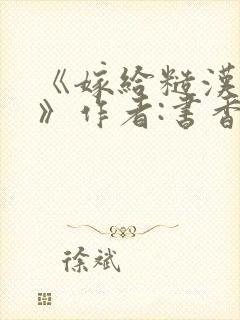 《嫁給糙漢
》作者:書香
徐斌